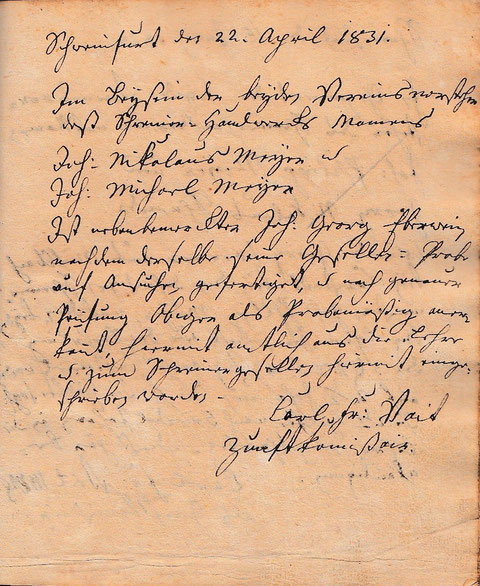 Schweinfurt den 22. April 1831.
Im Beysein der beyden Vereinsvorsteher
deß Schreiner-Handwercks Namens
Joh: Nikolaus Meyer u
Joh: Michael Meyer
Ist nebenbemerckter Joh. Georg Eberwein
nachdem derselbe seine Gesellen-Probe
auf Ansuchen gefertiget, u nach genauer
Prüfung Obiger als Probemäßig aner-
kannt, hiermit amtlich aus die Lehre
u. zum Schreinergesellen hiermit einge-
schrieben worden.
Carl Fr: Voit
Zunftkomißair.